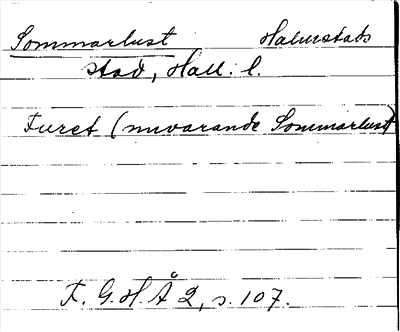 Sommarlust Halmstads
stad, Hall. l.
Furet (nuvarande Sommarlust)
F. G. H. Å 2, s. 107.